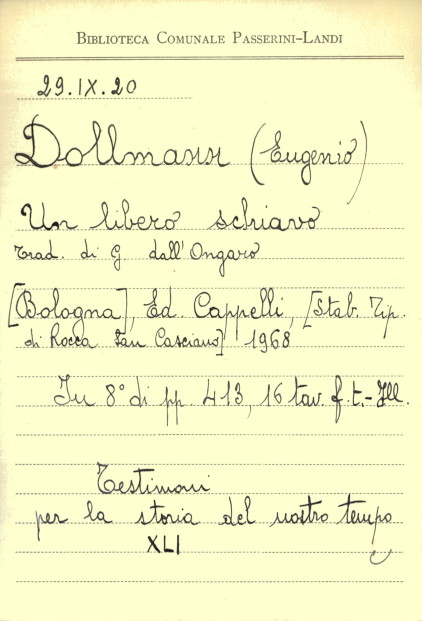 BIBLIOTECA COMUNALE PASSERINI-LANDI
29.IX.20
Dollmann (Eugenio)
Un libero schiavo
Trad. di G. dall'Ongaro
[Bologna], Ed. Cappelli, [Stab. Tip.
di Rocca San Casciano] 1968
In 8° di pp. 413, 16 tav. f. t. - Ill.
Testimoni
per la storia del nostro tempo
XLI